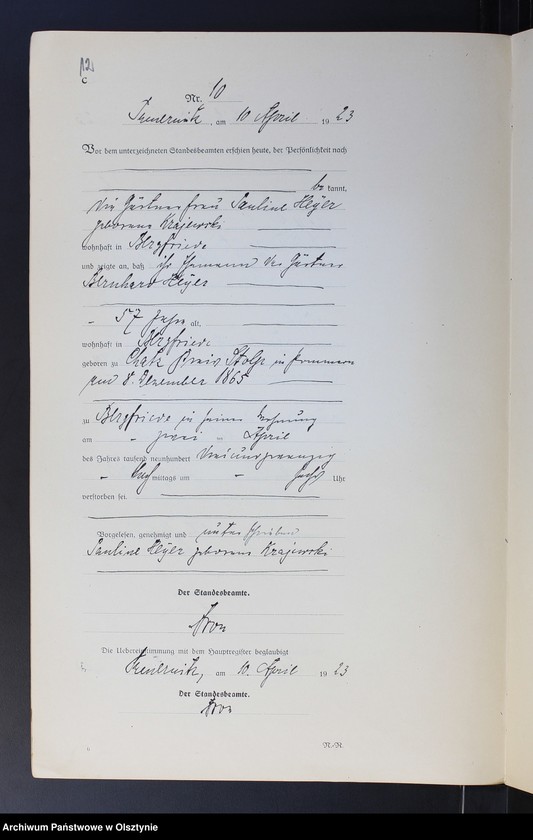 12
C
Nr. 10
am 10 April 1923
Vor dem unterzeichneten Standesbeamten erschien heute, der Persönlichkeit nach
be kannt,
die Gärtnerfrau Pauline Heyer
geborene Krajewski
wohnhaft in Bergfriede
und zeigte an, daß ihr Ehemann der Gärtner
Bernhard Heyer
57 Jahre alt,
wohnhaft in Bergfriede
geboren zu Kreis Stolp in Pommern
am 8. Dezember 1865
zu Bergfriede in seiner Wohnung
am - zwei - April
des Jahres tausend neunhundert dreiundzwanzig
mittags um - sechs Uhr
verstorben sei.
Vorgelesen, genehmigt und unterschrieben
Pauline Heyer geborene Krajewski
Der Standesbeamte.
Die Uebereinstimmung mit dem Hauptregister beglaubigt
am 10. April 1923
Der Standesbeamte.
N/R.
Archiwum Państwowe w Olsztynie